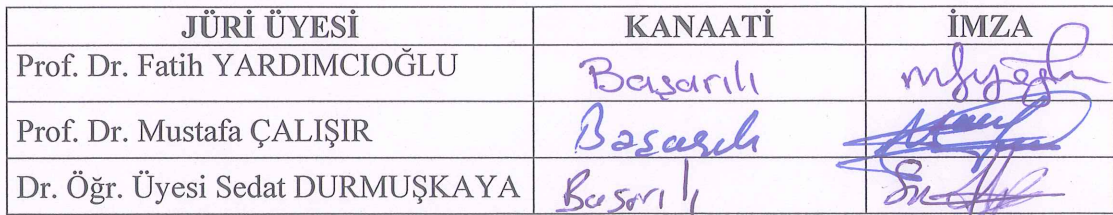 JÜRİ ÜYESİ KANAATİ İMZA
Prof. Dr. Fatih YARDIMCIOĞLU Başarılı
Prof. Dr. Mustafa ÇALIŞIR Başarılı
Dr. Öğr. Üyesi Sedat DURMUŞKAYA Başarılı